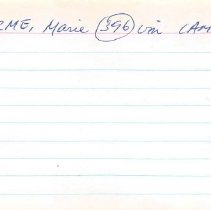 RME, Marie 396 via CAM